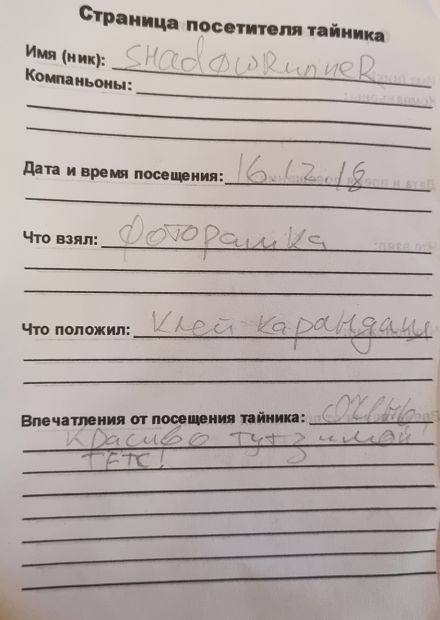 Страница посетителя тайника
Имя (ник): SHadowRunneR
Компаньоны:
Дата и время посещения: 16.12.18
Что взял: Фоторамка
Что положил: Клей карандаш
Впечатления от посещения тайника: Очень
красиво тут зимой
TFTC!